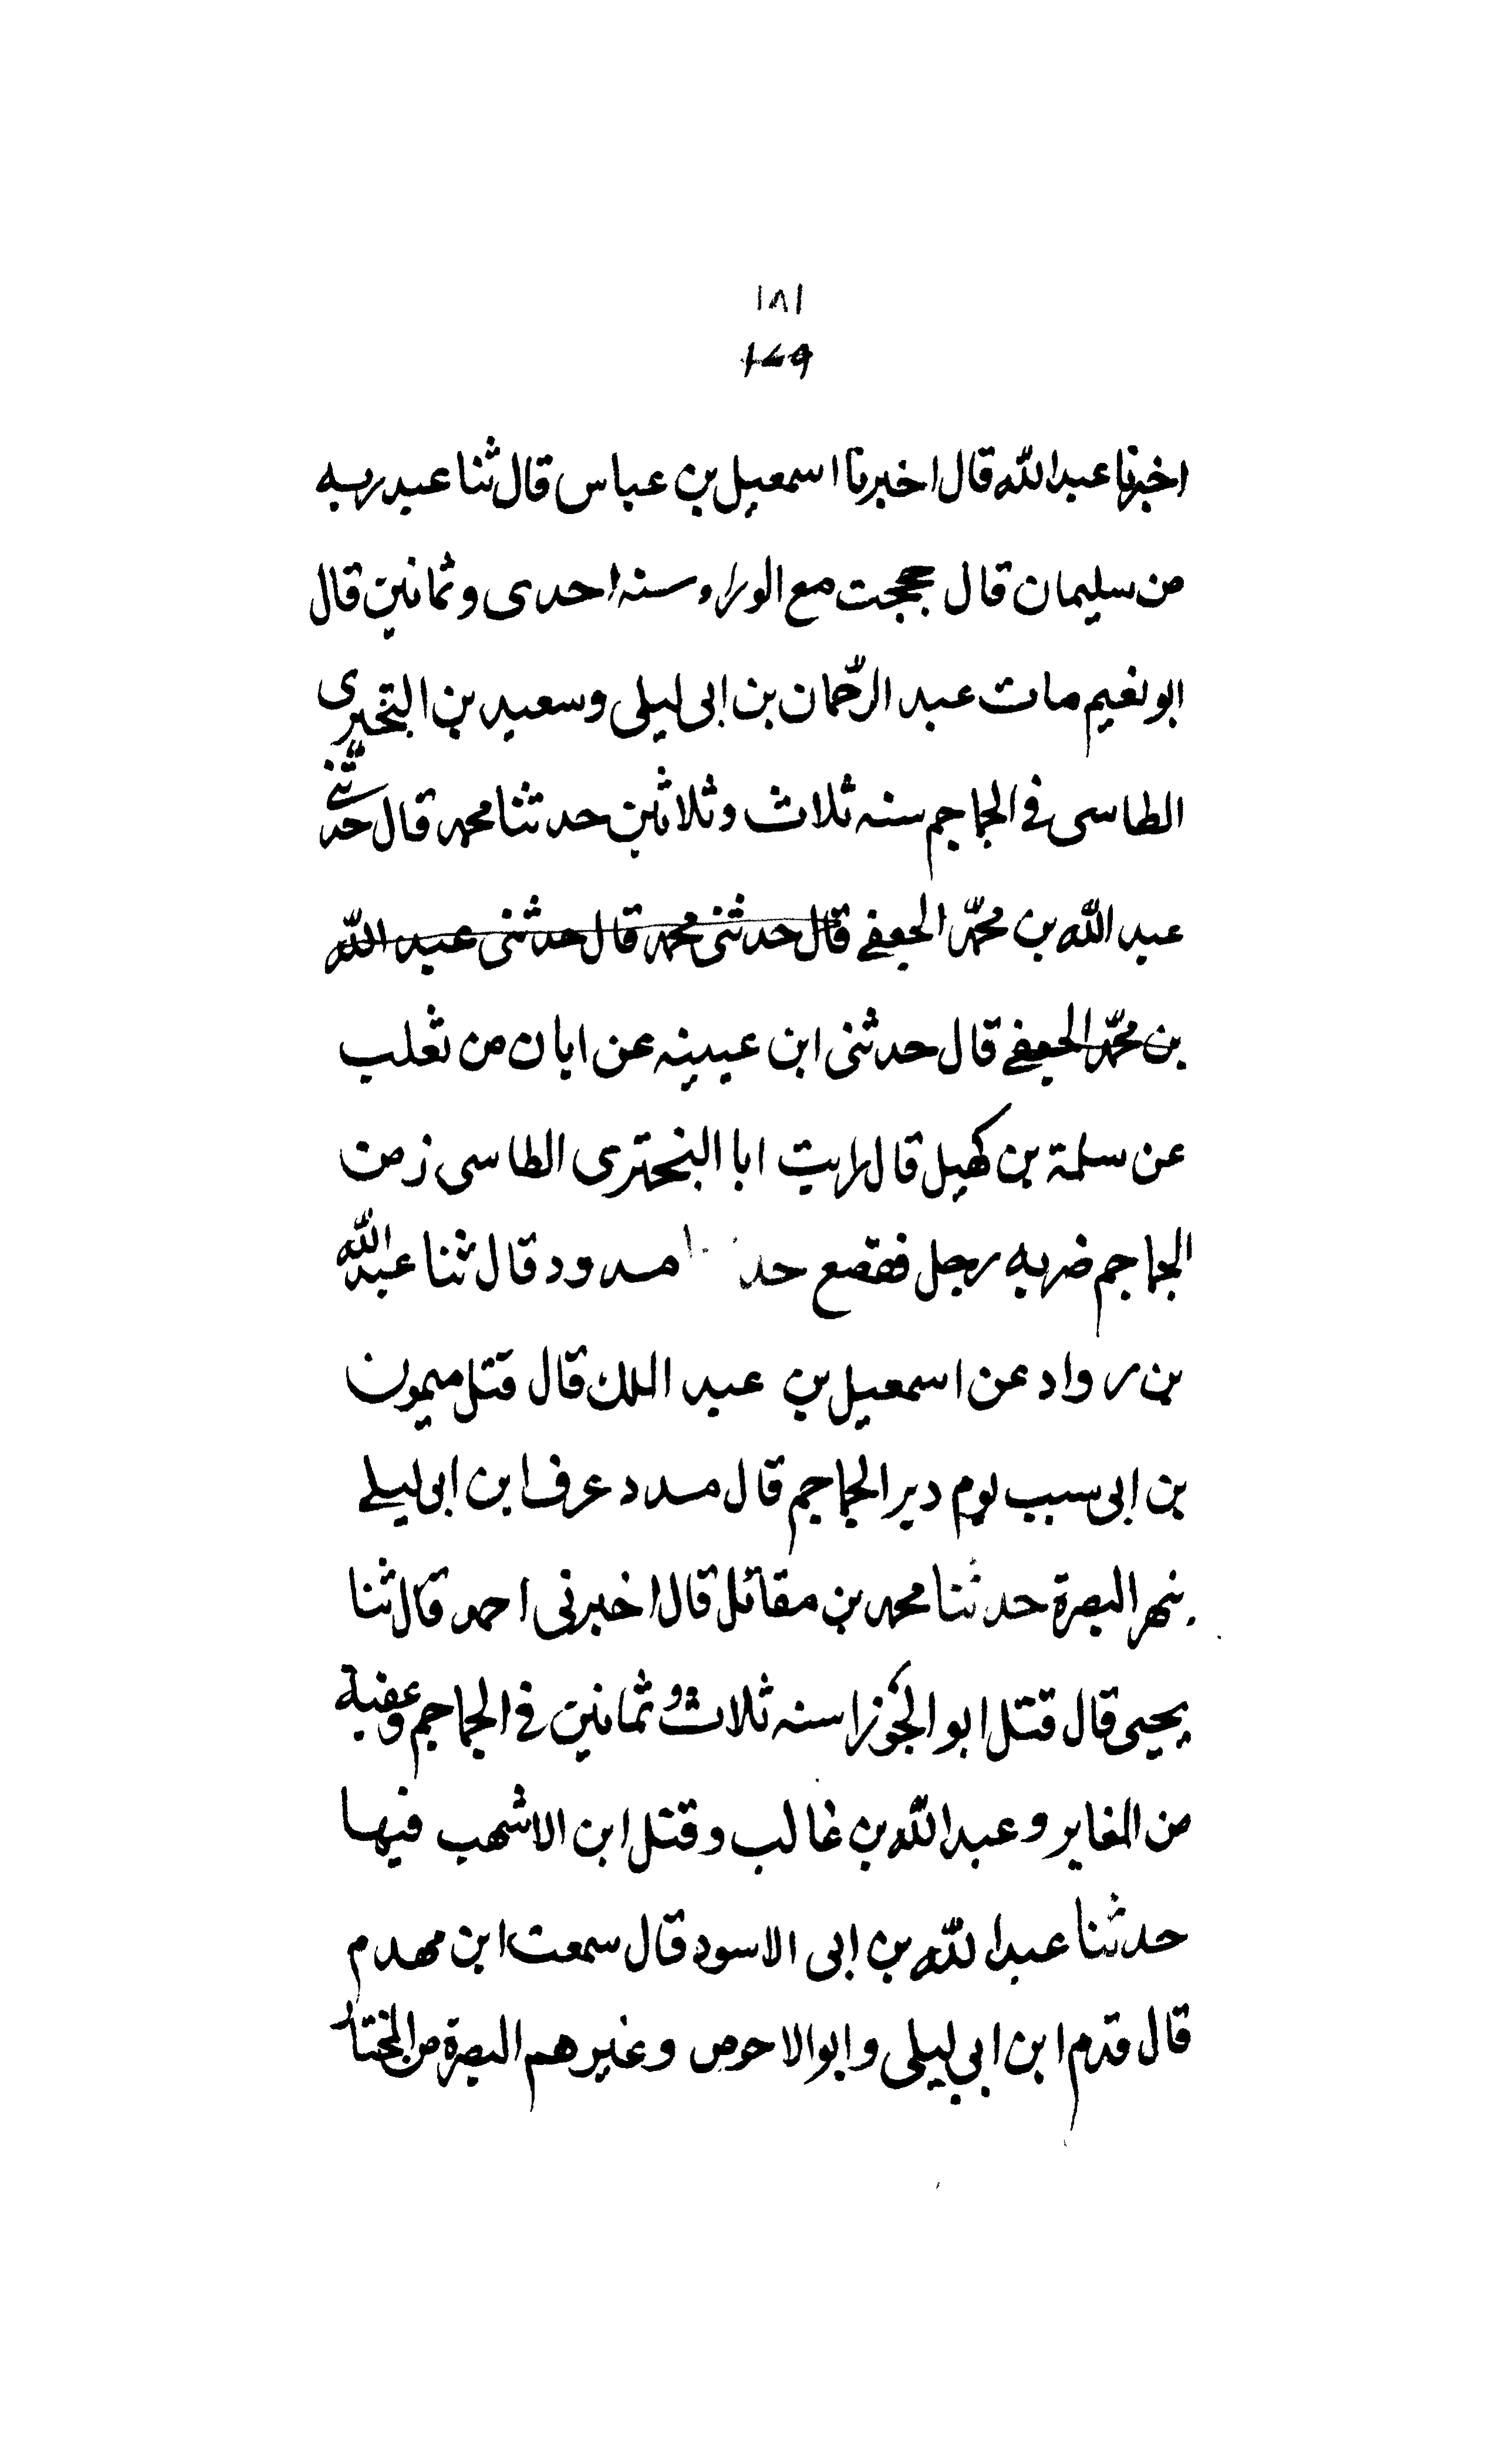 ١٨١
١٧٩
اخبرنا عبدالله قال اخبرنا اسمعيل بن عباس قال ثنا عبد ربه
من سليمان قال حججت مع الوراء سنه احدى وثمانين قال
ابو نعيم مات عبد الرحمان بن ابى ليلى وسعيد بن البختيرى
الطاسى فى الجماجم سنه ثلاث وثلاثين حدثنا محمد قال حدثنى
عبد الله بن محمد الجعفے قال حدثنى محمد قال حدثنى عبد الله
بن محمد الجعفے قال حدثنى ابن عيينه عن ابان من تغلب
عن سلمة بن كهيل قال رايت ابا البختری الطاسى زمن
الجماجم ضربه رجل فقصع مسدود قال ثنا عبدالله
بن رواد عن اسمعيل بن عبد الملك قال قتل ميمون
بن ابى سبب يوم دير الجماجم قال مسدد عرف ابن ابى ليلے
بنهر البصرة حدثنا محمد بن مقاتل قال اخبرنى احمد قال ثنا
يحيى قال قتل ابو الجوزا سنه ثلاث وثمانين فى الجماجم وعقبة
من المغاير وعبدالله بن غالب وقتل ابن الاشهب فيها
حدثنا عبدالله بن ابى الاسود قال سمعت ابن مهدم
قال قدم ابن ابي ليلى وابوالاحوص وغيرهم البصرة من المختار